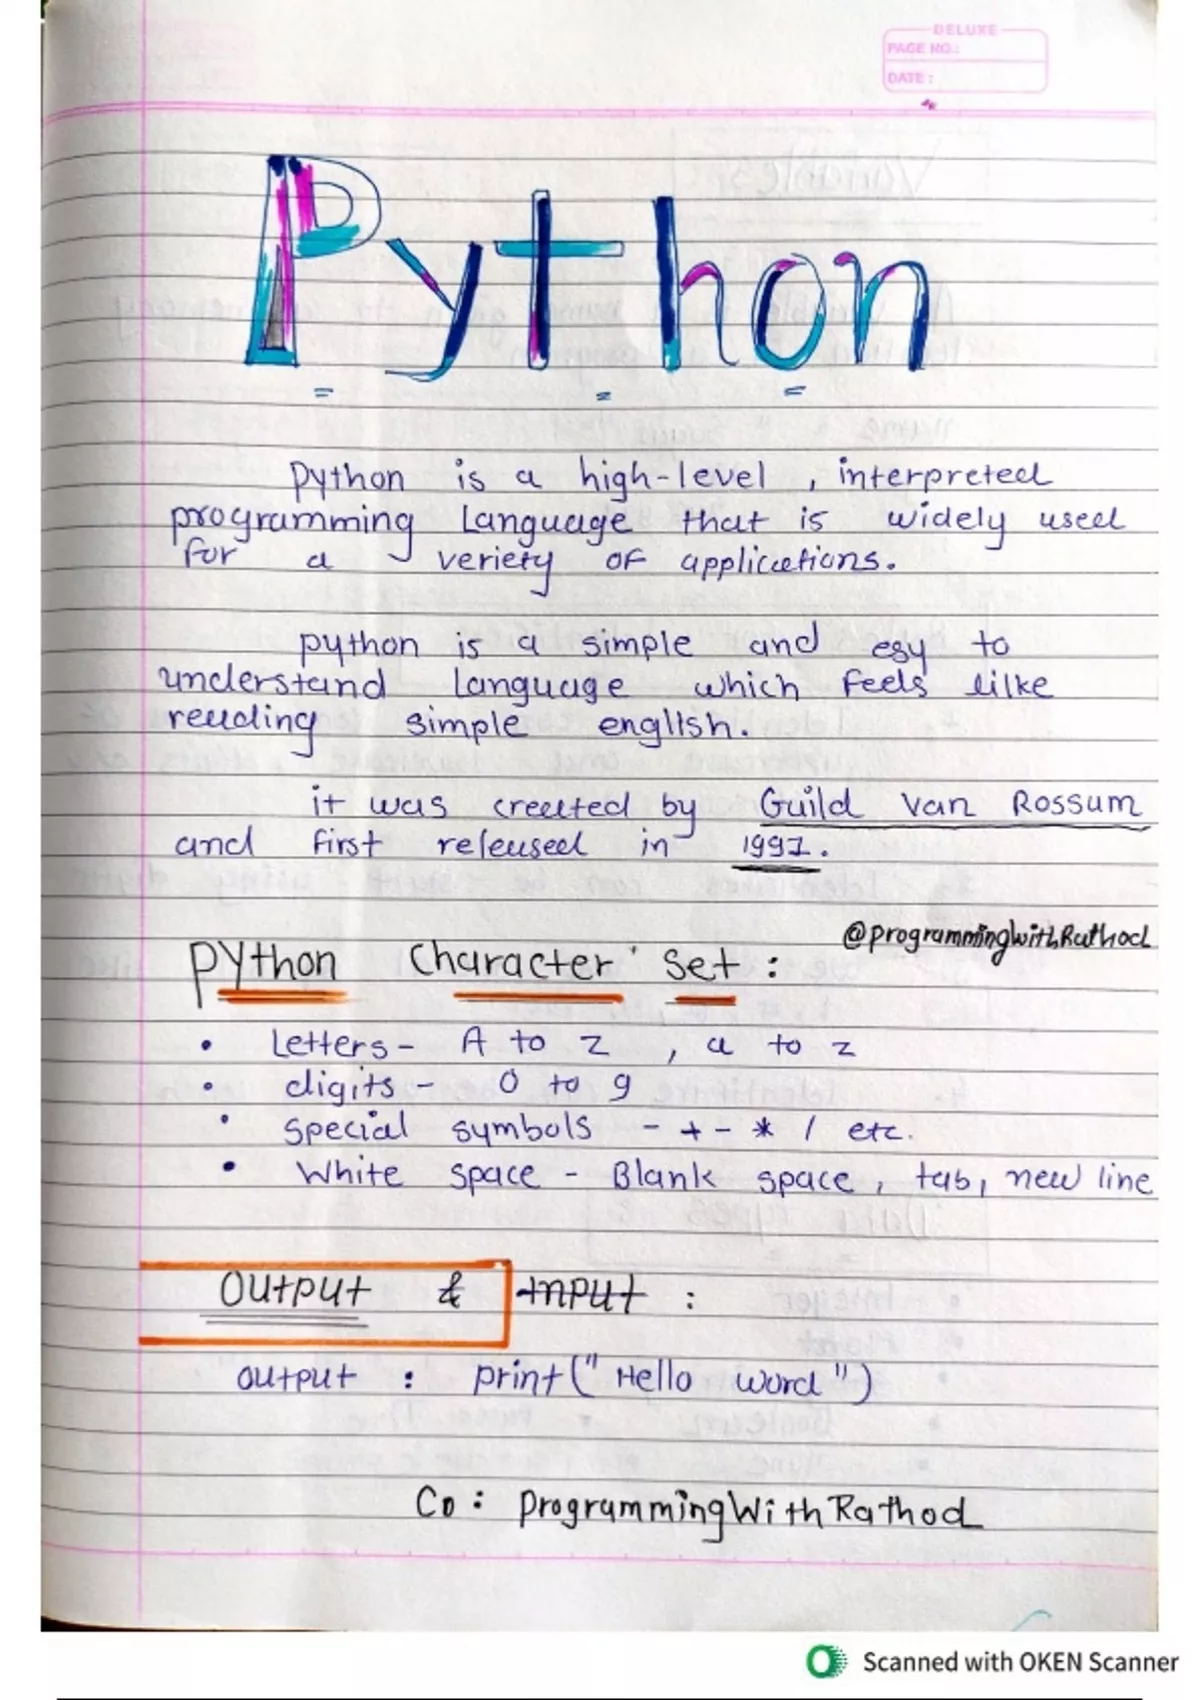 DELUXE
PAGE NO.:
DATE :
Python
Python is a high-level , interpreted
programming Language that is widely used
for a veriety of applications.
python is a simple and esy to
understand Language which feels lilke
reading simple english.
it was created by Guild Van Rossum
and first released in 1991.
@programmingwithRathod
Python Character set :
• Letters - A to Z , a to z
• digits - 0 to 9
• special symbols - + - * / etc.
• White space - Blank space , tab, new line
Output & Input :
output : print(" Hello word ")
Co : ProgrammingWithRathod
Scanned with OKEN Scanner